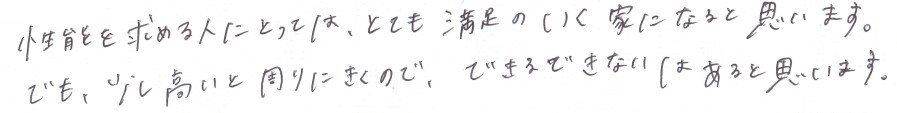 性能を求める人にとっては、とても満足のいく家になると思います。
でも、少し高いと周りにきくので、できるできないはあると思います。